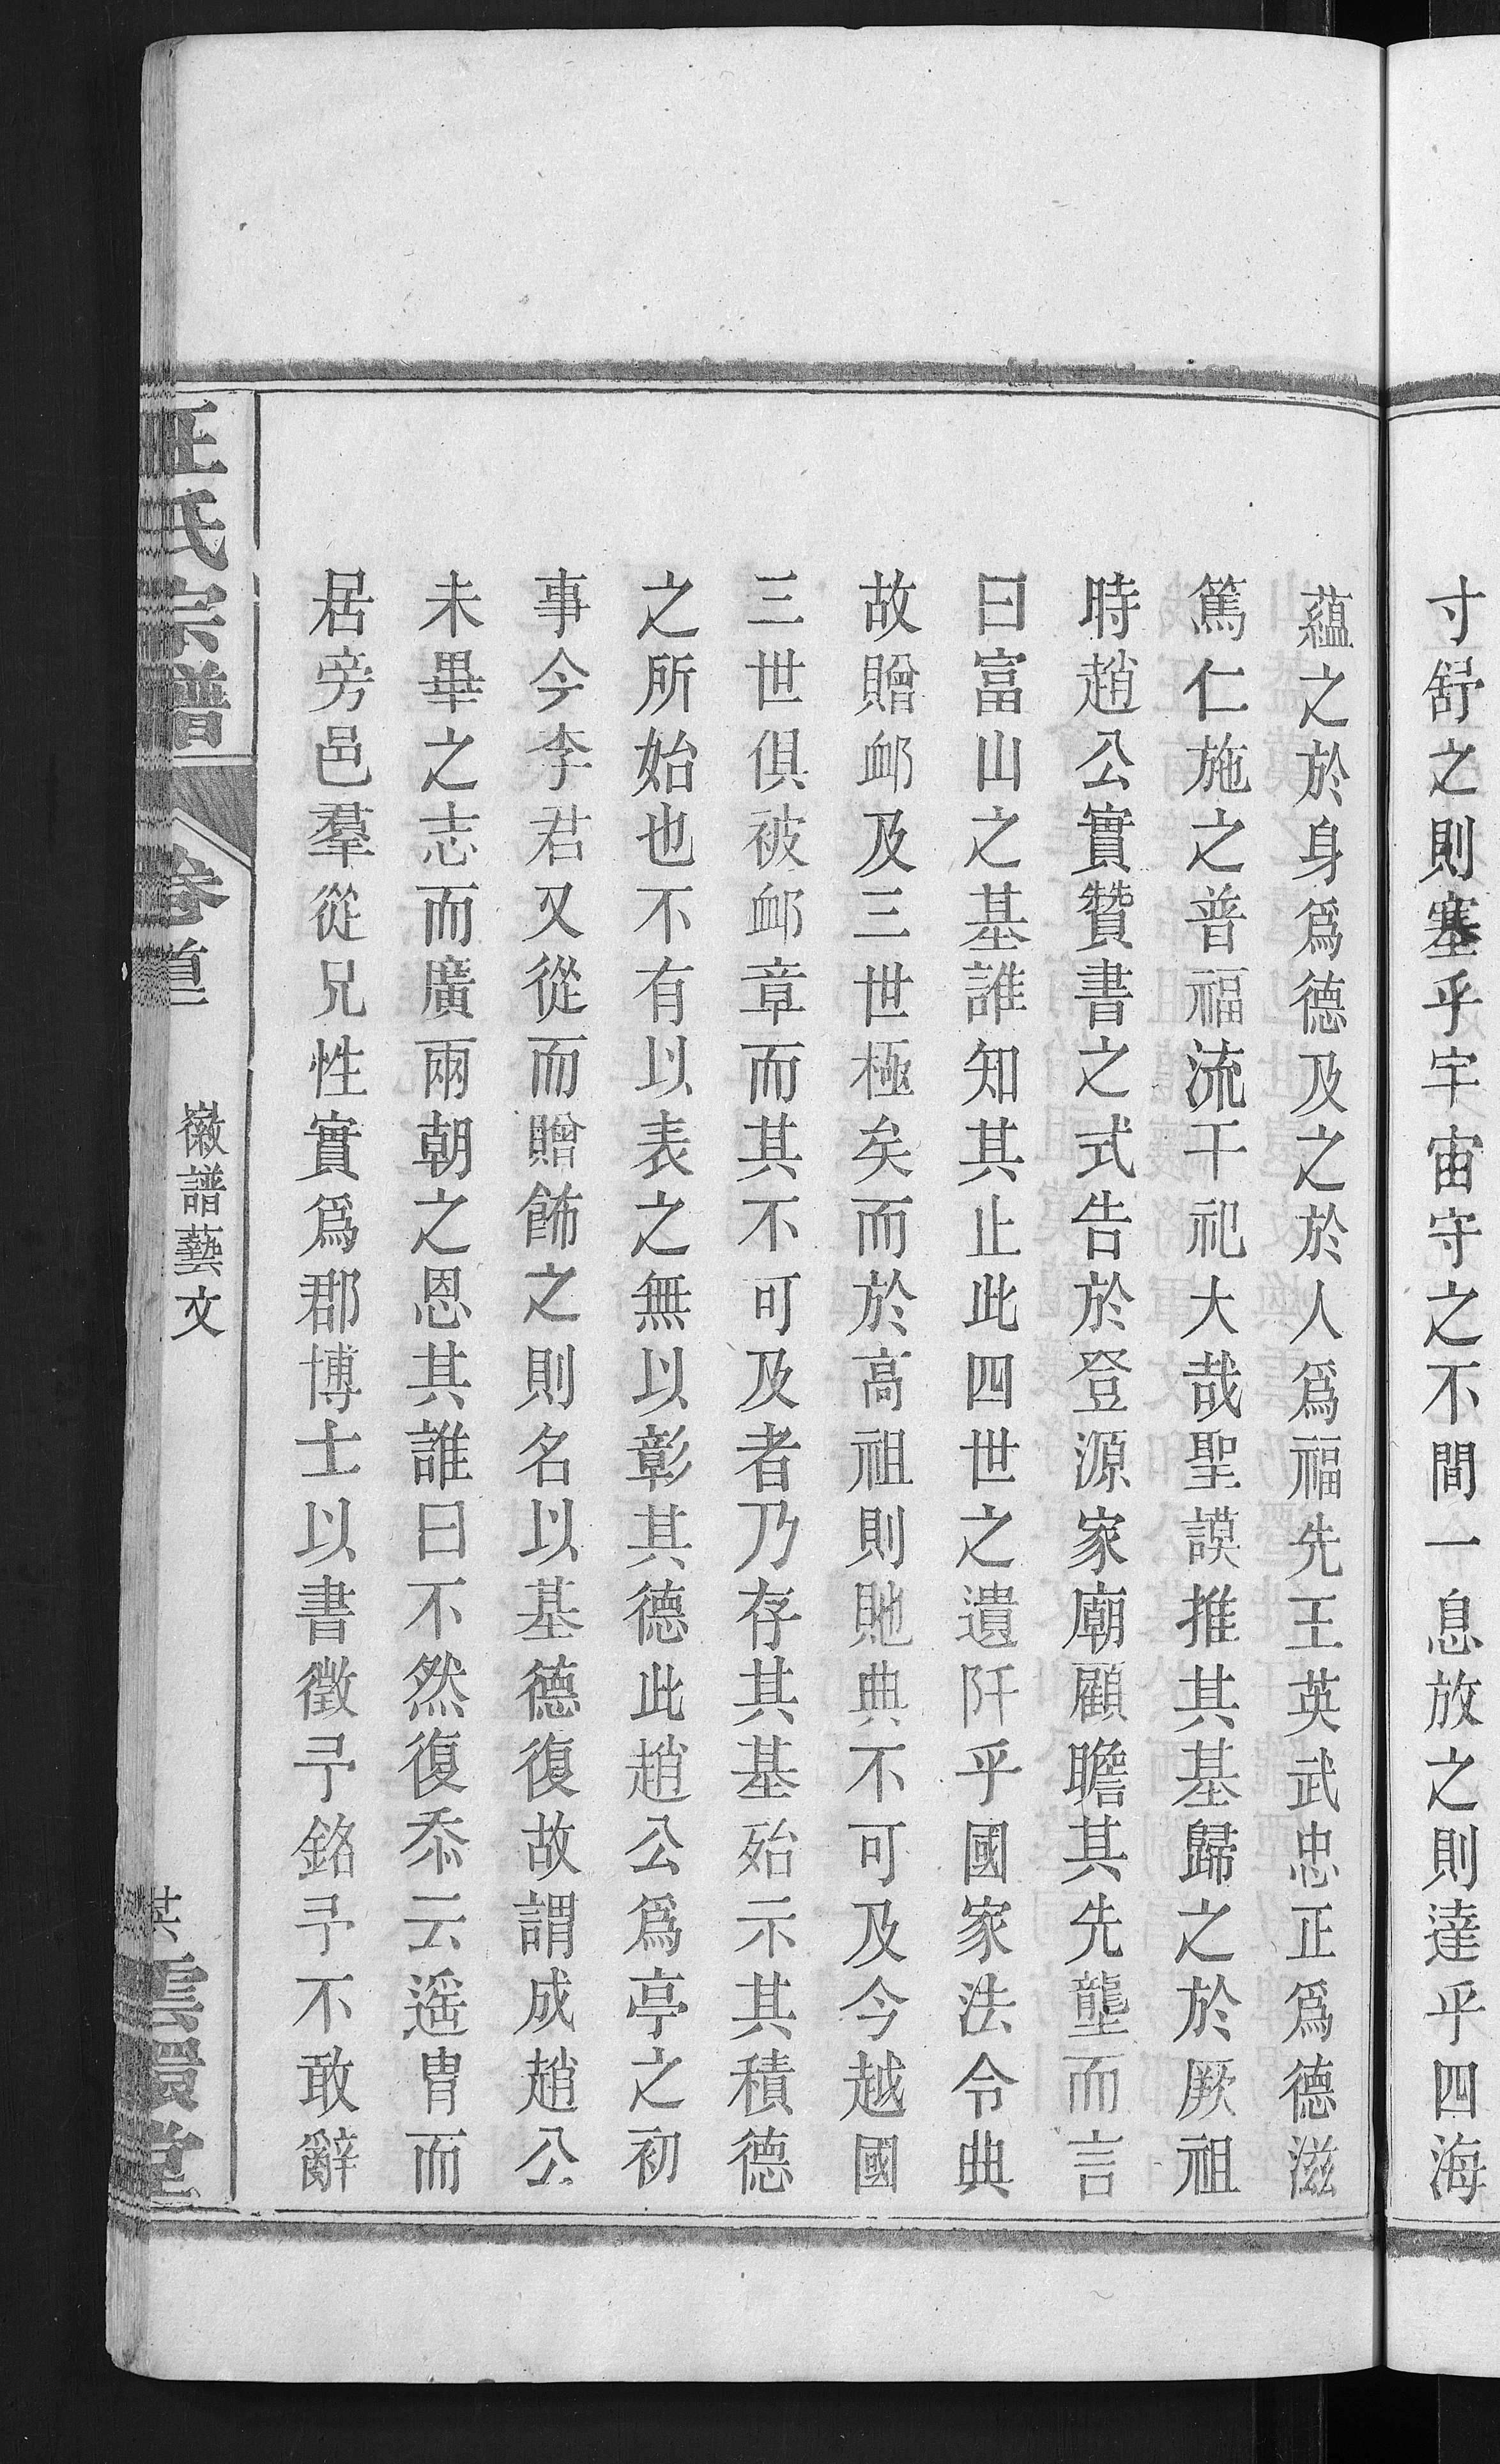 寸舒之則塞乎宇宙守之不間一息放之則達乎四海
蘊之於身爲德及之於人爲福先王英武忠正爲德滋
篤仁施之普福流干祀大哉聖謨推其基歸之於厥祖
時趙公實贊書之式告於登源家廟顧瞻其先壟而言
曰富山之基誰知其止此四世之遺阡乎國家法令典
故贈衈及三世極矣而於高祖則貤典不可及今越國
三世俱被衈章而其不可及者乃存其基殆示其積德
之所始也不有以表之無以彰其德此趙公爲亭之初
事今李君又從而贈飾之則名以基德復故謂成趙公
未畢之志而廣兩朝之恩其誰曰不然復忝云遥胄而
居旁邑羣從兄性實爲郡博士以書徵予銘予不敢辭
汪氏宗譜
卷首
徽譜藝文
雲環堂